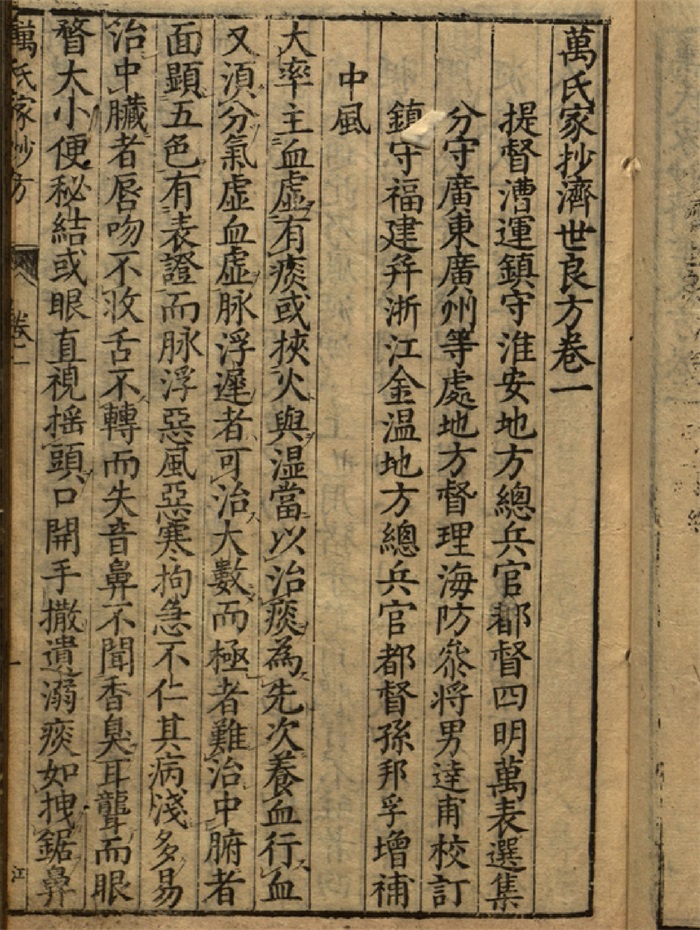 萬氏家抄濟世良方卷一
提督漕運鎮守淮安地方總兵官都督四明萬表選集
分守廣東廣州等處地方督理海防叅將男達甫校訂
鎮守福建并浙江金温地方總兵官都督孫邦孚增補
中風
大率主血虛有痰或挾火與濕當以治痰為先次養血行血
又湏分氣虛血虛脉浮遲者可治大數而極者難治中腑者
面顯五色有表證而脉浮惡風惡寒拘急不仁其病淺多易
治中臟者唇吻不收舌不轉而失音鼻不聞香臭耳聾而眼
瞀大小便秘結或眼直視揺頭口開手撒遺溺痰如拽鋸鼻
萬氏家抄方
卷一
一
江